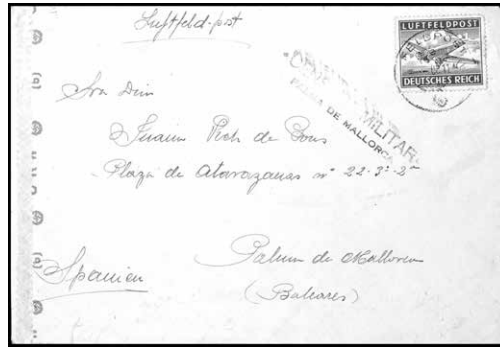 Luftfeld-post
LUFTFELDPOST
DEUTSCHES REICH
FELDPOST
CENSURA MILITAR
PALMA DE MALLORCA
Sra
Juana Pich de Bous
Plaza de Atarazanas nº 22-3º-2ª
Palma de Mallorca
(Baleares)
Spanien